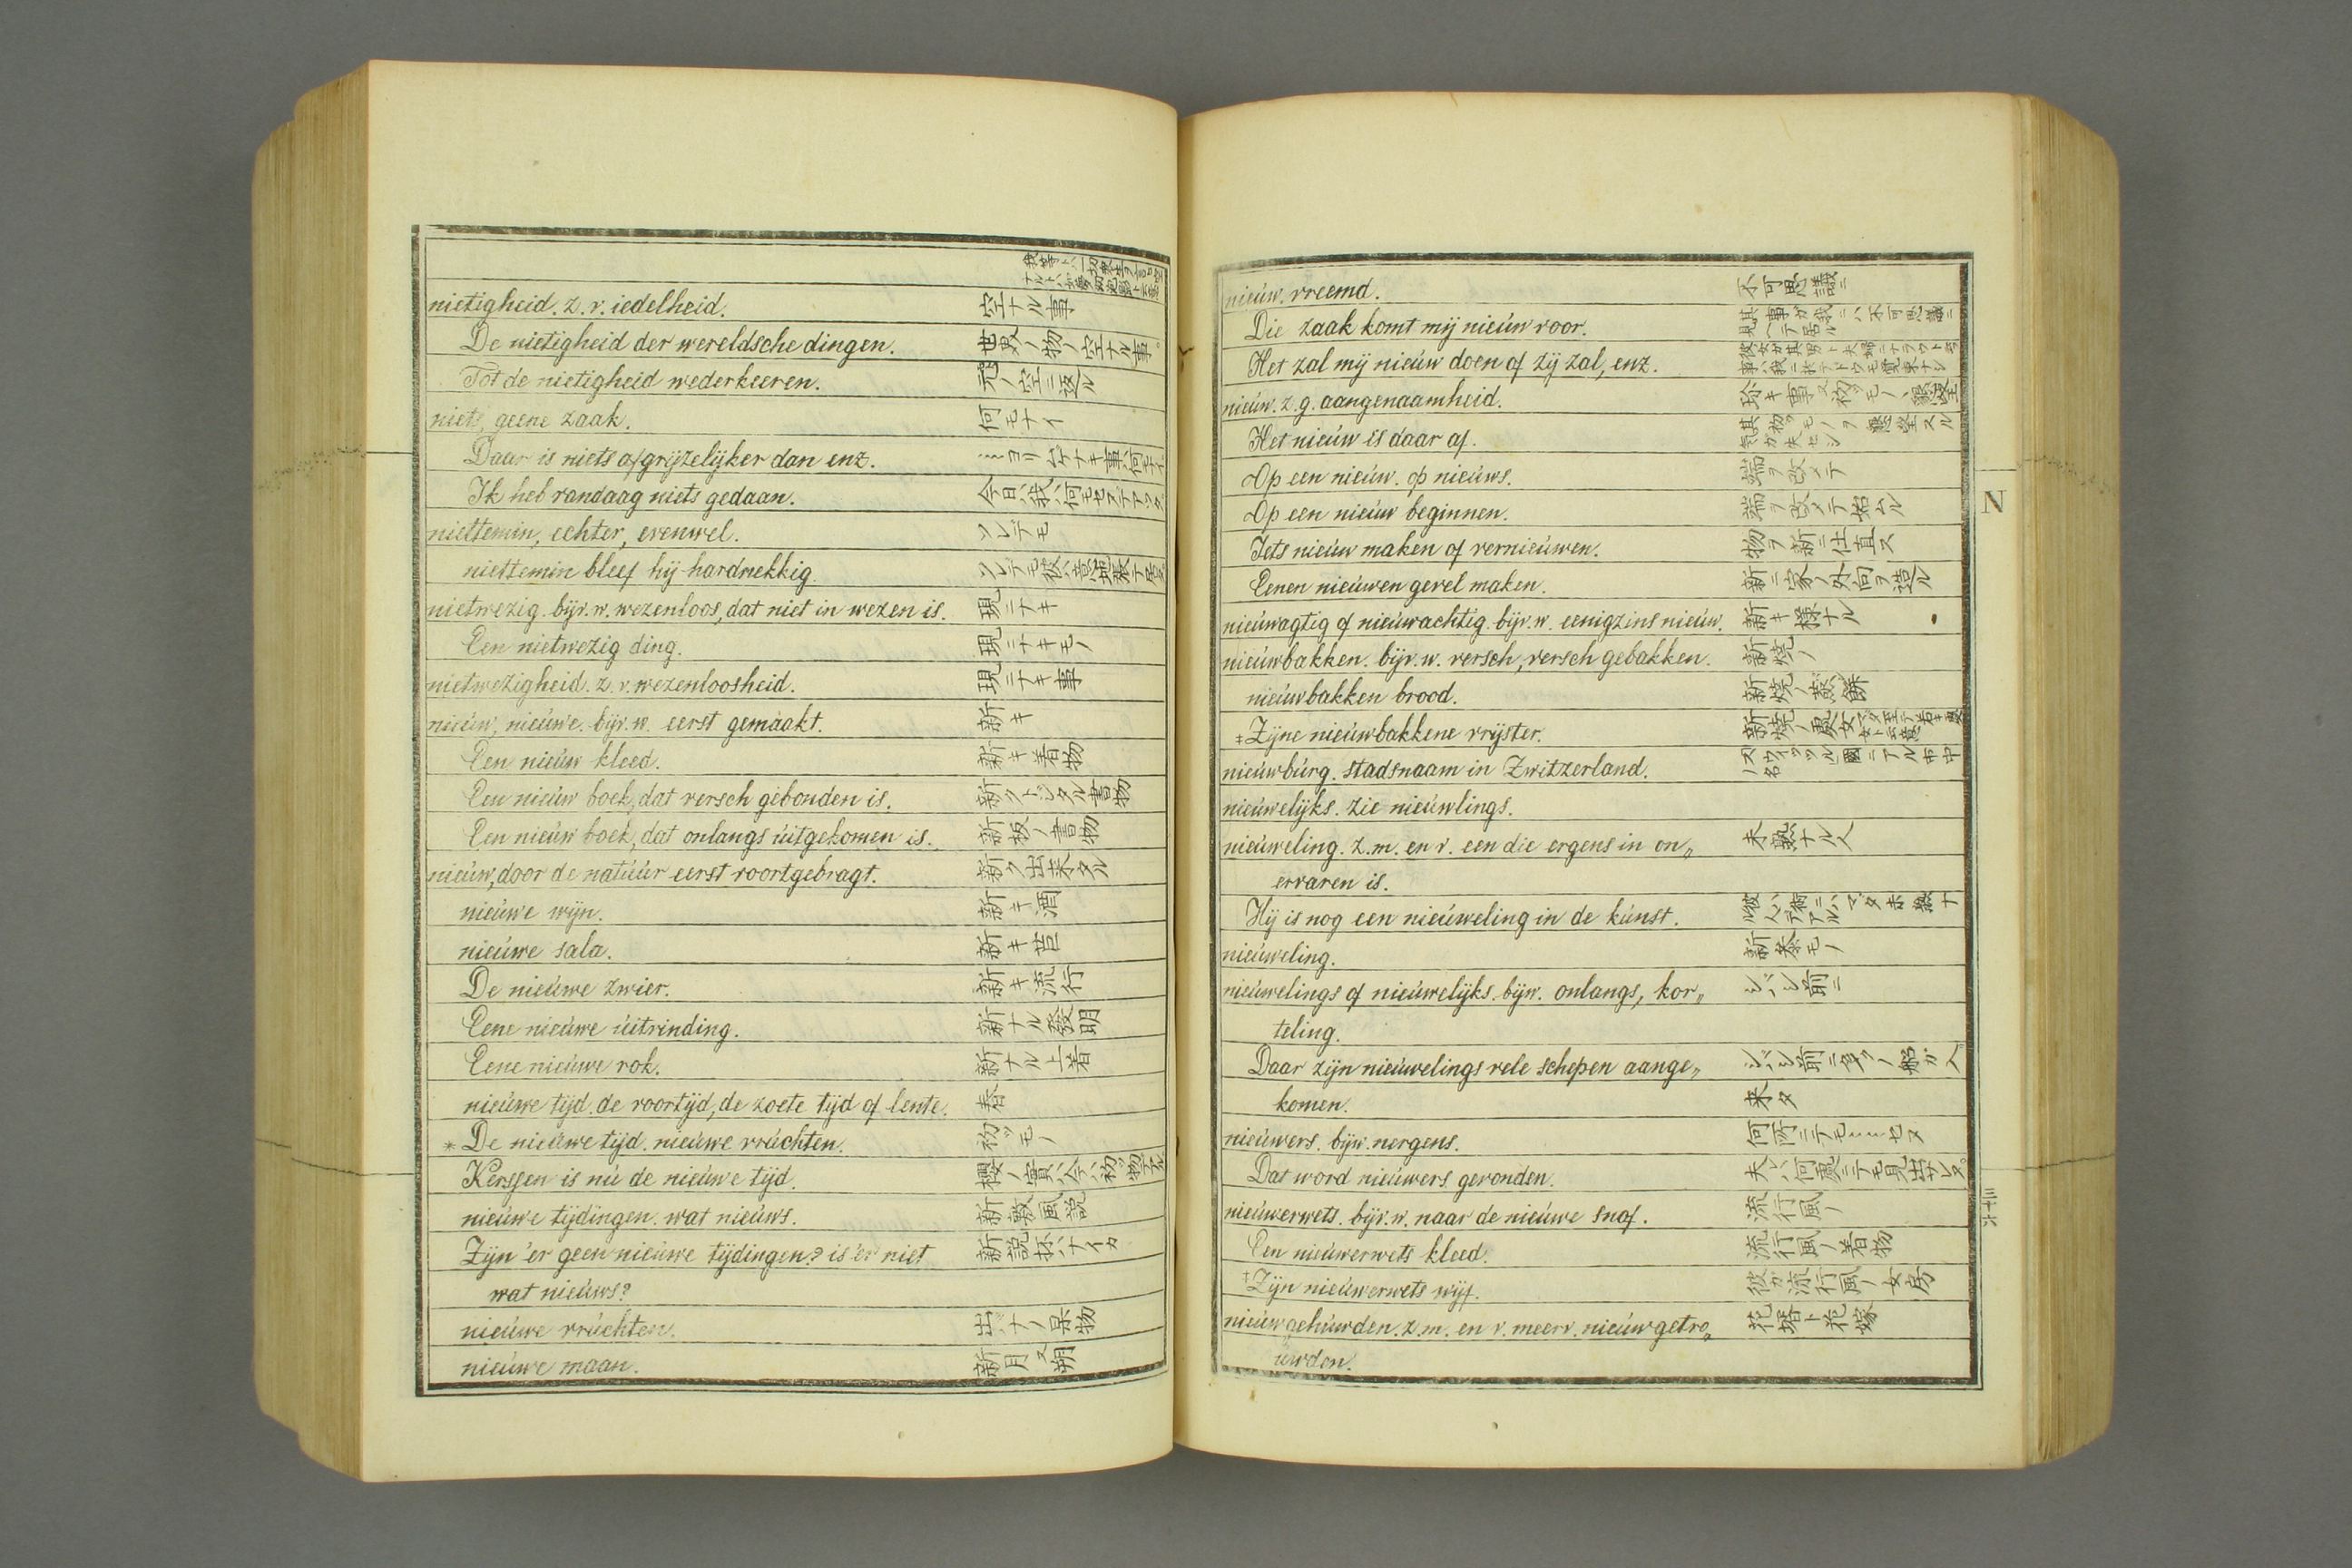 nietigheid. z. v. iedelheid. 空ナル事
De nietigheid der wereldsche dingen. 世界ノ物ノ空ナル事
Tot de nietigheid wederkeeren. 元ノ空ニ返ル
niets, geene zaak. 何モナイ
Daar is niets afgrijzelijker dan enz.
Ik heb vandaag niets gedaan. 今日ハ我ハ何モセズアツタ
niettemin, echter, evenwel. ソレデモ
niettemin bleef hij hardnekkig. ソレデモ彼ハ意地張テ居タ
nietwezig. bijv. w. wezenloos, dat niet in wezen is. 現ニナキ
Een nietwezig ding. 現ニナキモノ
nietwezigheid. z. v. wezenloosheid. 現ニナキ事
nieúw, nieúwe. bijv. w. eerst gemaakt. 新キ
Een nieúw kleed. 新キ着物
Een nieúw boek, dat versch gebonden is. 新クトジタル書物
Een nieúw boek, dat onlangs úitgekomen is. 新板ノ書物
nieúw, door de natúúr eerst voortgebragt. 新ク出来タル
nieúwe wijn. 新キ酒
nieúwe sala. 新キ苣
De nieúwe zwier. 新キ流行
Eene nieúwe úitvinding. 新ナル發明
Eene nieúwe rok. 新ナル上着
nieúwe tijd. de voortijd, de zoete tijd of lente. 春
* De nieúwe tijd. nieúwe vrúchten. 初モノ
Kerssen is nú de nieúwe tijd. 櫻ノ實ハ今ハ初物デアル
nieúwe tijdingen. wat nieúws. 新敷風説
Zijn 'er geen nieúwe tijdingen? is 'er niet 新説抔ハナイカ
wat nieúws?
nieúwe vrúchten. 出バナノ果物
nieúwe maan. 新月 又 朔
nieúw. vreemd. 不可思議ニ
Die zaak komt mij nieúw voor. 其事ガ我ニハ不可思議ニ見ヘテ居ル
Het zal mij nieúw doen of zij zal, enz.
nieúw. z. g. aangenaamheid.
Het nieúw is daar af.
Op een nieúw. op nieúws. 端ヲ改メテ
Op een nieúw beginnen. 端ヲ改メテ始ムル
Iets nieúw maken of vernieúwen. 物ヲ新ニ仕直ス
Eenen nieúwen gevel maken. 新ニ家ノ外向ヲ造ル
nieúwagtig of nieúwachtig. bijv. w. eenigzins nieúw. 新キ様ナル
nieúwbakken. bijv. w. versch, versch gebakken. 新焼ノ
nieúwbakken brood. 新焼ノ蒸餅
‡ Zijne nieúwbakkene vrijster.
nieúwbúrg. stadsnaam in Zwitzerland.
nieúwelijks. zie nieúwlings.
nieúweling. z. m. en v. een die ergens in on„ 未熟ナル人
ervaren is.
Hij is nog een nieúweling in de kúnst. 彼ハ術ニハマダ未熟ナル人デアル
nieúweling. 新参モノ
nieúwelings of nieúwelijks. bijw. onlangs, kor„ シバシ前ニ
teling.
Daar zijn nieúwelings vele schepen aange„
komen. 来タ
nieúwers. bijw. nergens. 何所ニテモ……セヌ
Dat word nieúwers gevonden. 夫ハ何處ニテモ見出サレヌ
nieúwerwets. bijv. w. naar de nieúwe snof. 流行風ノ
Een nieúwerwets kleed. 流行風ノ着物
‡ Zijn nieúwerwets wijf. 彼ガ流行風ノ女房
nieúwgehúwden. z. m. en v. meerv. nieúwgetro„ 花婿ト花嫁
úwden.
N